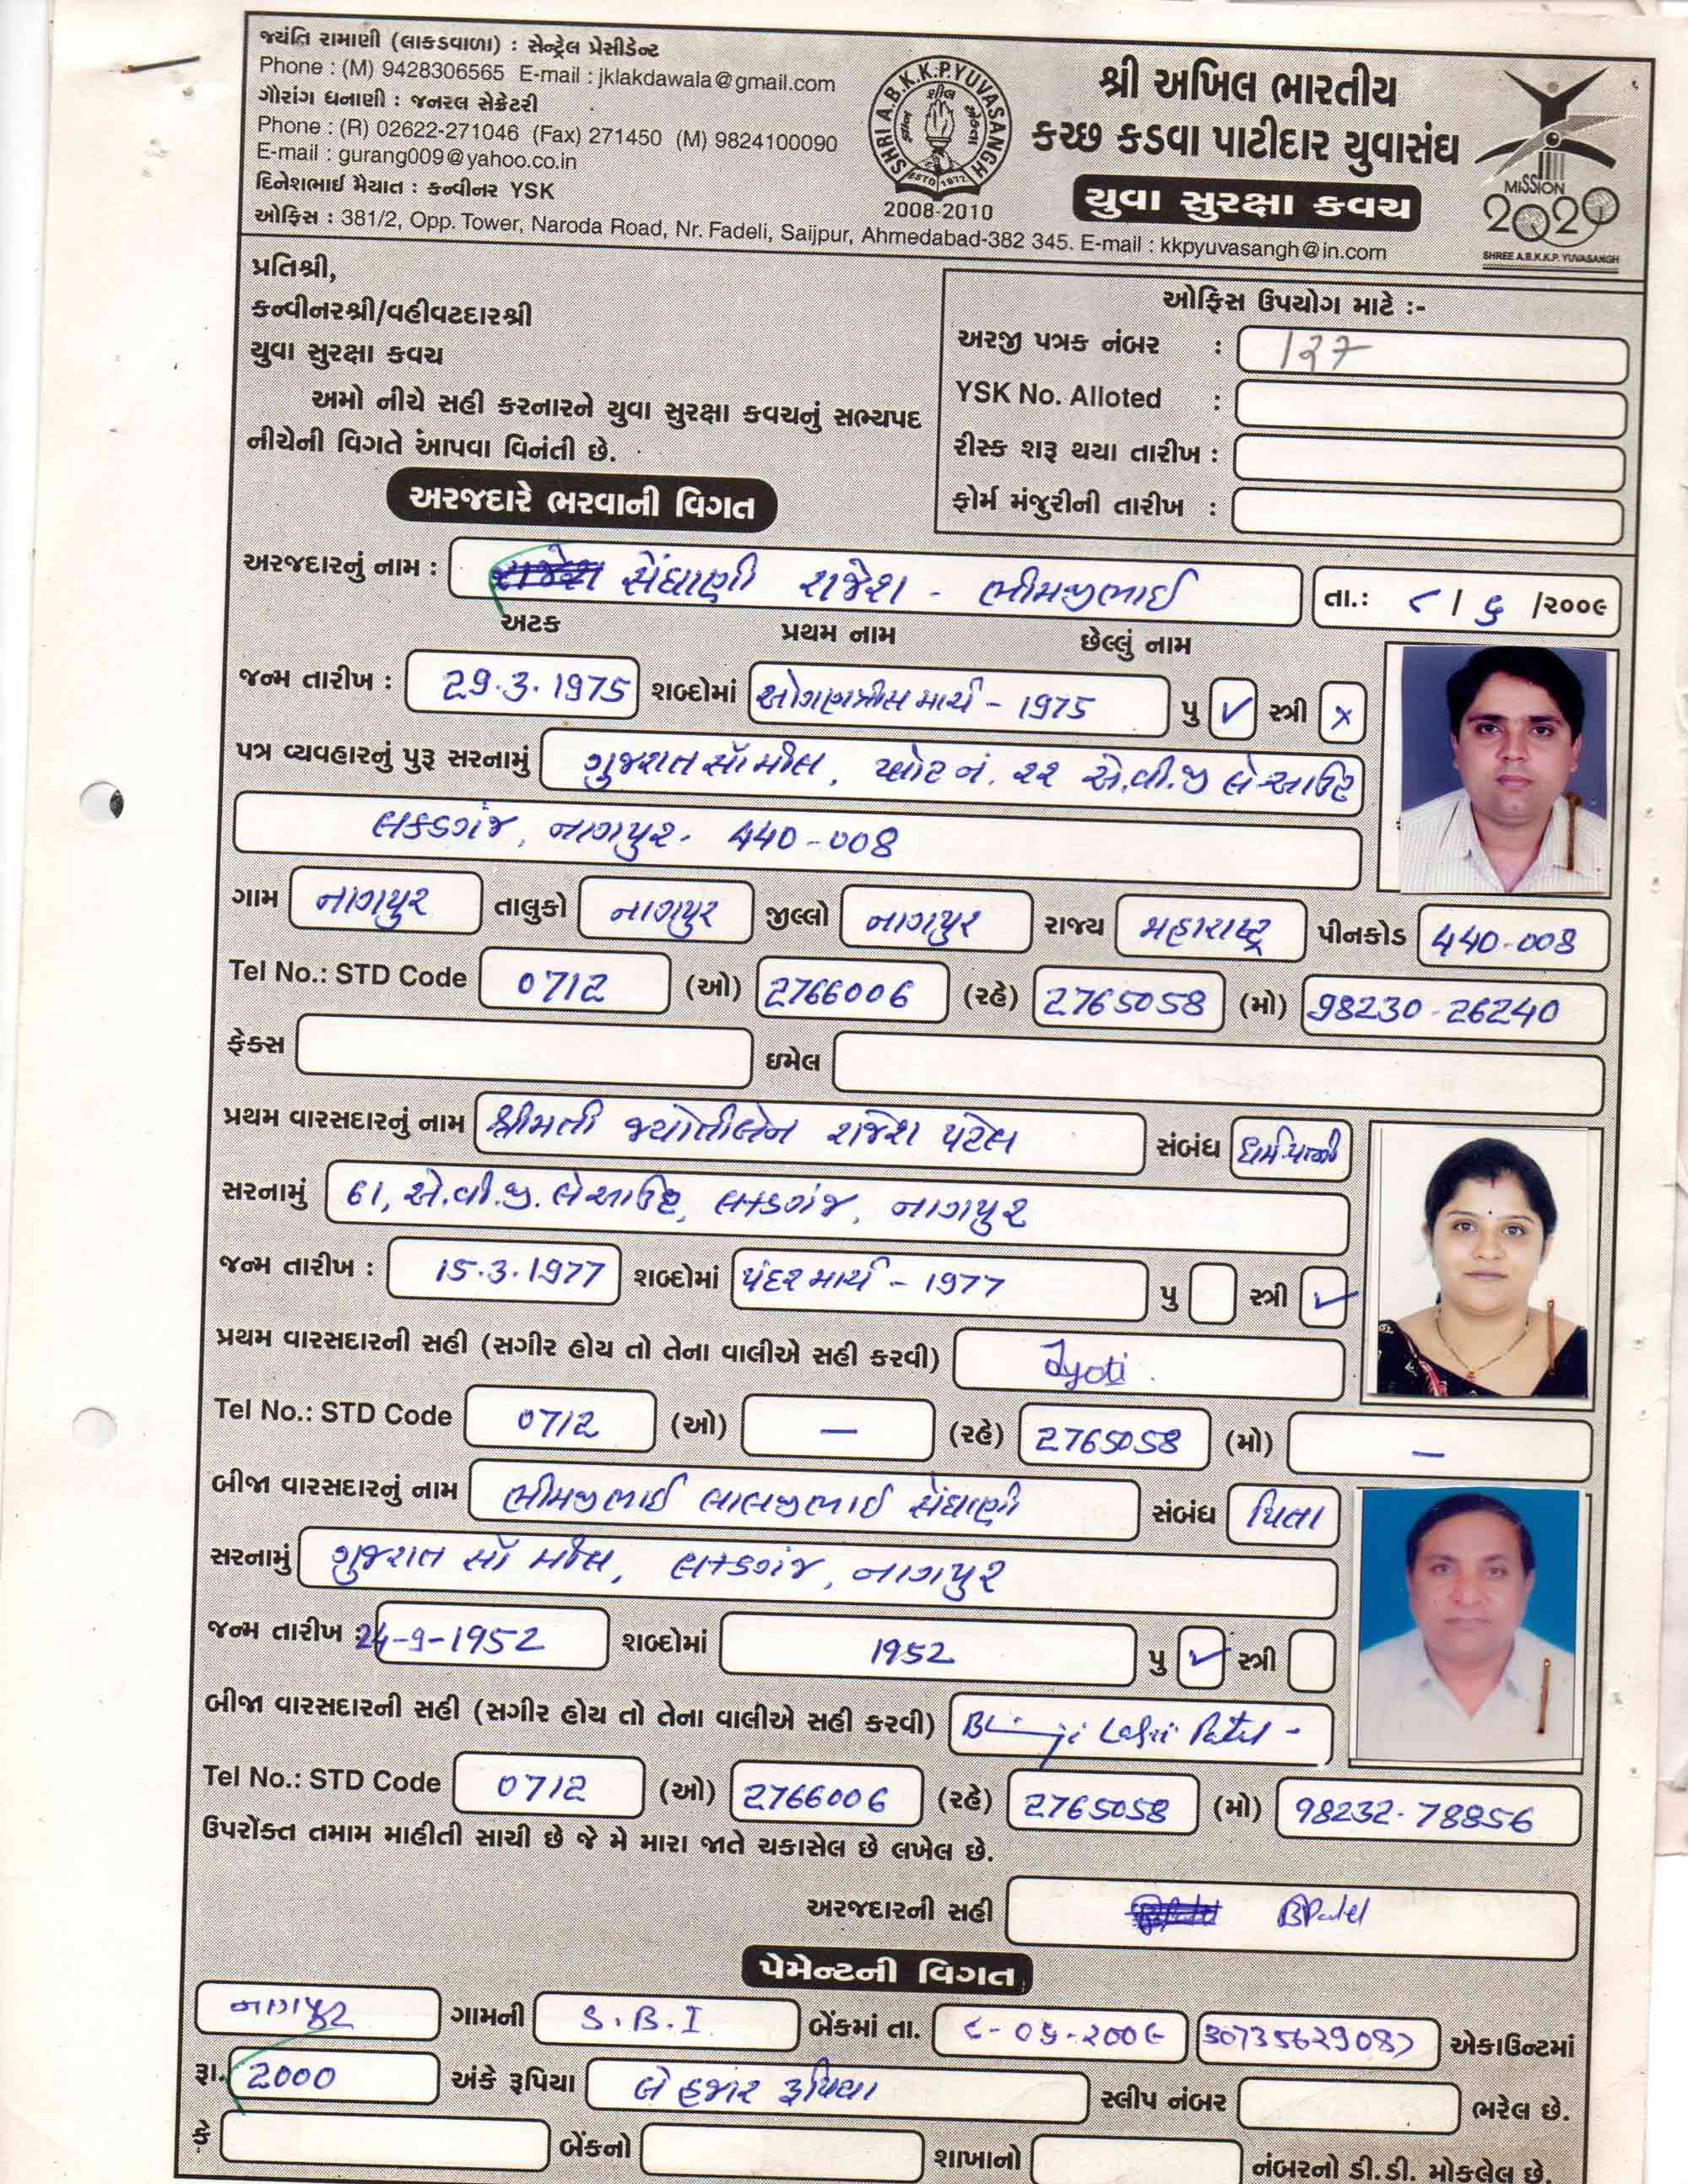 જયંતિ રામાણી (લાકડાવાળા) : સેન્ટ્રેલ પ્રેસીડેન્ટ
Phone : (M) 9428306565 E-mail : jklakdawala@gmail.com
ગૌરાંગ ધનાણી : જનરલ સેક્રેટરી
Phone : (R) 02622-271046 (Fax) 271450 (M) 9824100090
E-mail : gurang009@yahoo.co.in
દિનેશભાઈ મૈયાત : કન્વીનર YSK
ઓફિસ : 381/2, Opp. Tower, Naroda Road, Nr. Fadeli, Saijpur, Ahmedabad-382 345. E-mail : kkpyuvasangh@in.com
SHRI A.B.K.K.P.YUVASANGH
ESTD 1972
2008-2010
શ્રી અખિલ ભારતીય
કચ્છ કડવા પાટીદાર યુવાસંઘ
યુવા સુરક્ષા કવચ
MISSION
2020
SHREE A.B.K.K.P. YUVASANGH
પ્રતિશ્રી,
કન્વીનરશ્રી/વહીવટદારશ્રી
યુવા સુરક્ષા કવચ
અમો નીચે સહી કરનારને યુવા સુરક્ષા કવચનું સભ્યપદ
નીચેની વિગતે આંપવા વિનંતી છે.
ઓફિસ ઉપયોગ માટે :-
અરજી પત્રક નંબર : 127
YSK No. Alloted :
રીસ્ક શરૂ થયા તારીખ :
ફોર્મ મંજુરીની તારીખ :
અરજદારે ભરવાની વિગત
અરજદારનું નામ : સેંઘાણી રાજેશ - ભીમજીભાઈ તા.: ૮ / ૬ /૨૦૦૯
અટક પ્રથમ નામ છેલ્લું નામ
જન્મ તારીખ : 29.3.1975 શબ્દોમાં ઓગણત્રીસ માર્ચ - 1975 પુ ✓ સ્ત્રી x
પત્ર વ્યવહારનું પુરૂ સરનામું ગુજરાત સૉ મીલ, પ્લોટ નં. ૨૨ એ.વી.જી લેઆઉટ
લકડગંજ, નાગપુર. 440-008
ગામ નાગપુર તાલુકો નાગપુર જીલ્લો નાગપુર રાજ્ય મહારાષ્ટ્ર પીનકોડ 440-008
Tel No.: STD Code 0712 (ઓ) 2766006 (રહે) 2765058 (મો) 98230-26240
ફેક્સ ઇમેલ
પ્રથમ વારસદારનું નામ શ્રીમતી જ્યોતીબેન રાજેશ પટેલ સંબંધ ધર્મપત્ની
સરનામું 61, એ.વી.જી. લેઆઉટ, લકડગંજ, નાગપુર
જન્મ તારીખ : 15.3.1977 શબ્દોમાં પંદર માર્ચ - 1977 પુ સ્ત્રી ✓
પ્રથમ વારસદારની સહી (સગીર હોય તો તેના વાલીએ સહી કરવી) Jyoti.
Tel No.: STD Code 0712 (ઓ) — (રહે) 2765058 (મો) —
બીજા વારસદારનું નામ ભીમજીભાઈ લાલજીભાઈ સેંઘાણી સંબંધ પિતા
સરનામું ગુજરાત સૉ મીલ, લકડગંજ, નાગપુર
જન્મ તારીખ : 24-9-1952 શબ્દોમાં 1952 પુ ✓ સ્ત્રી
બીજા વારસદારની સહી (સગીર હોય તો તેના વાલીએ સહી કરવી) Lalji Patel -
Tel No.: STD Code 0712 (ઓ) 2766006 (રહે) 2765058 (મો) 98232-78856
ઉપરોંક્ત તમામ માહીતી સાચી છે જે મે મારા જાતે ચકાસેલ છે લખેલ છે.
અરજદારની સહી BPatel
પેમેન્ટની વિગત
નાગપુર ગામની S.B.I બેંકમાં તા. ૮-૦૬-૨૦૦૯ 30735629087 એકાઉન્ટમાં
રૂા. 2000 અંકે રૂપિયા બે હજાર રૂપિયા સ્લીપ નંબર ભરેલ છે.
કે બેંકનો શાખાનો નંબરનો ડી.ડી. મોકલેલ છે.